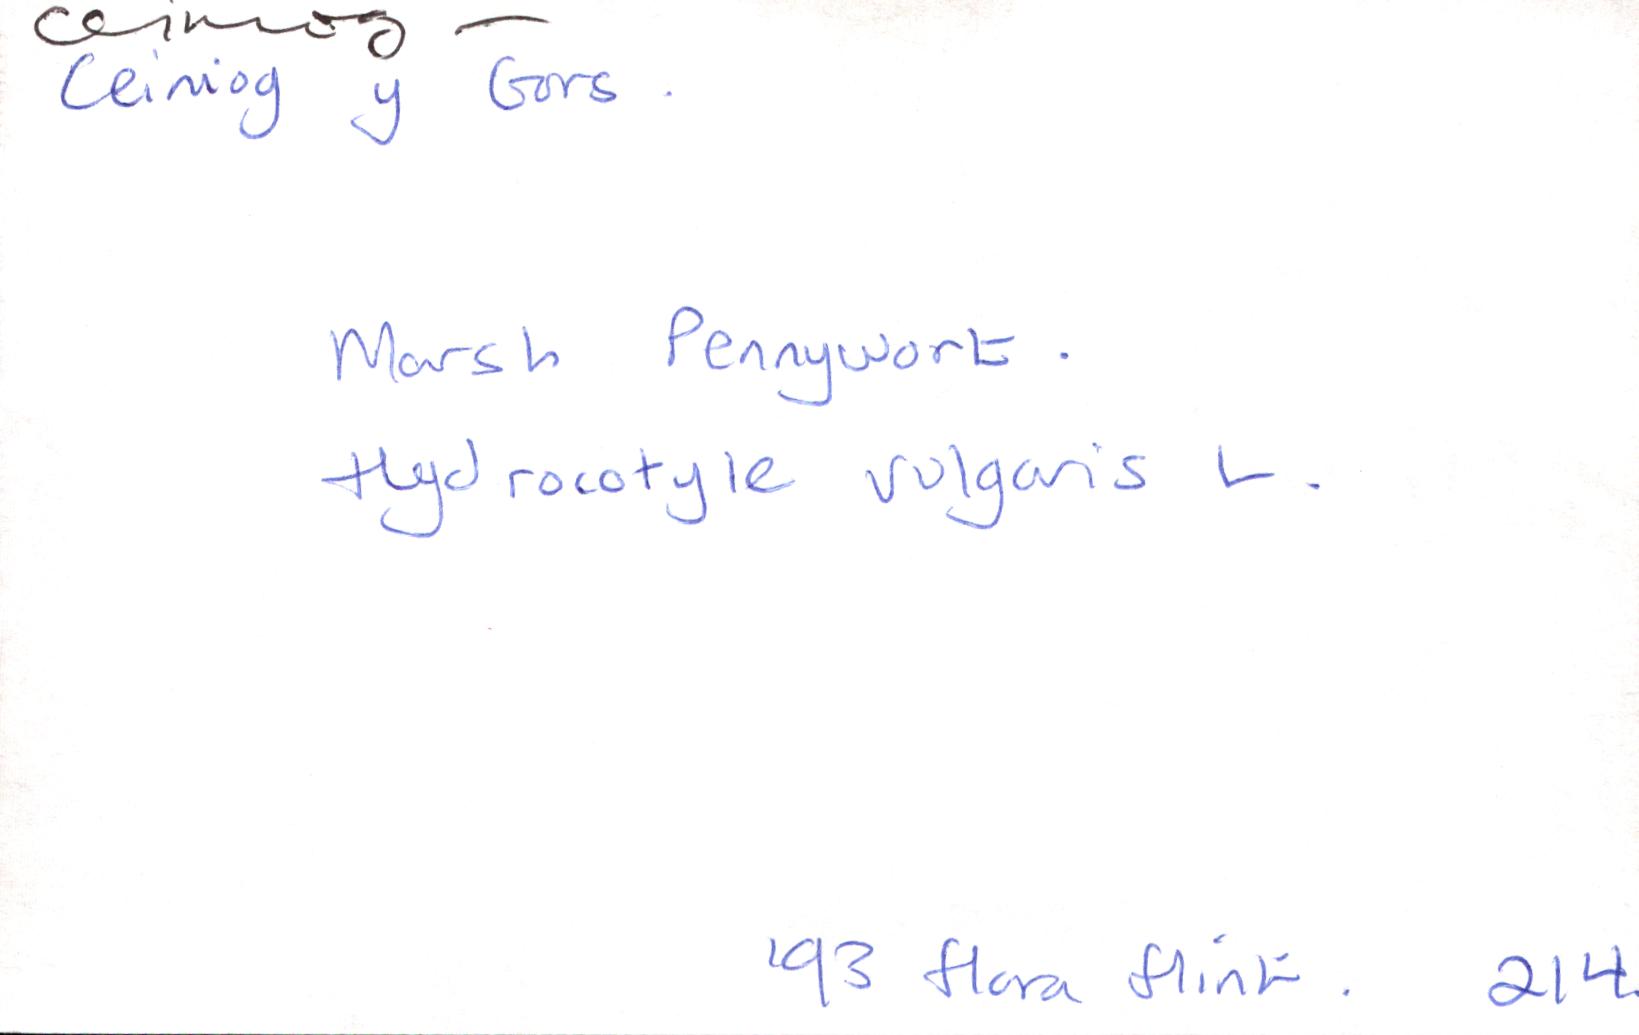 ceiniog —
Ceiniog y Gors.
Marsh Pennywort.
Hydrocotyle vulgaris L.
'93 flora flint. 214.